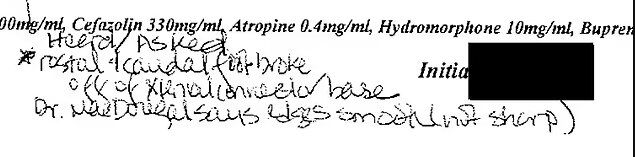 00mg/ml, Cefazolin 330mg/ml, Atropine 0.4mg/ml, Hydromorphone 10mg/ml, Bupren
Heard/Asked
* rostal + caudal foot broke
Initia
off of external connector/base
Dr. says edges smooth (not sharp)